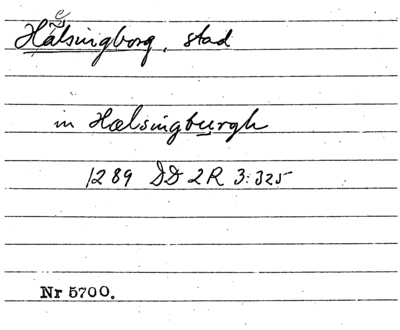 Hälsingborg, stad
in Hælsingburgh
1289 DD 2R 3:325
Nr 5700.